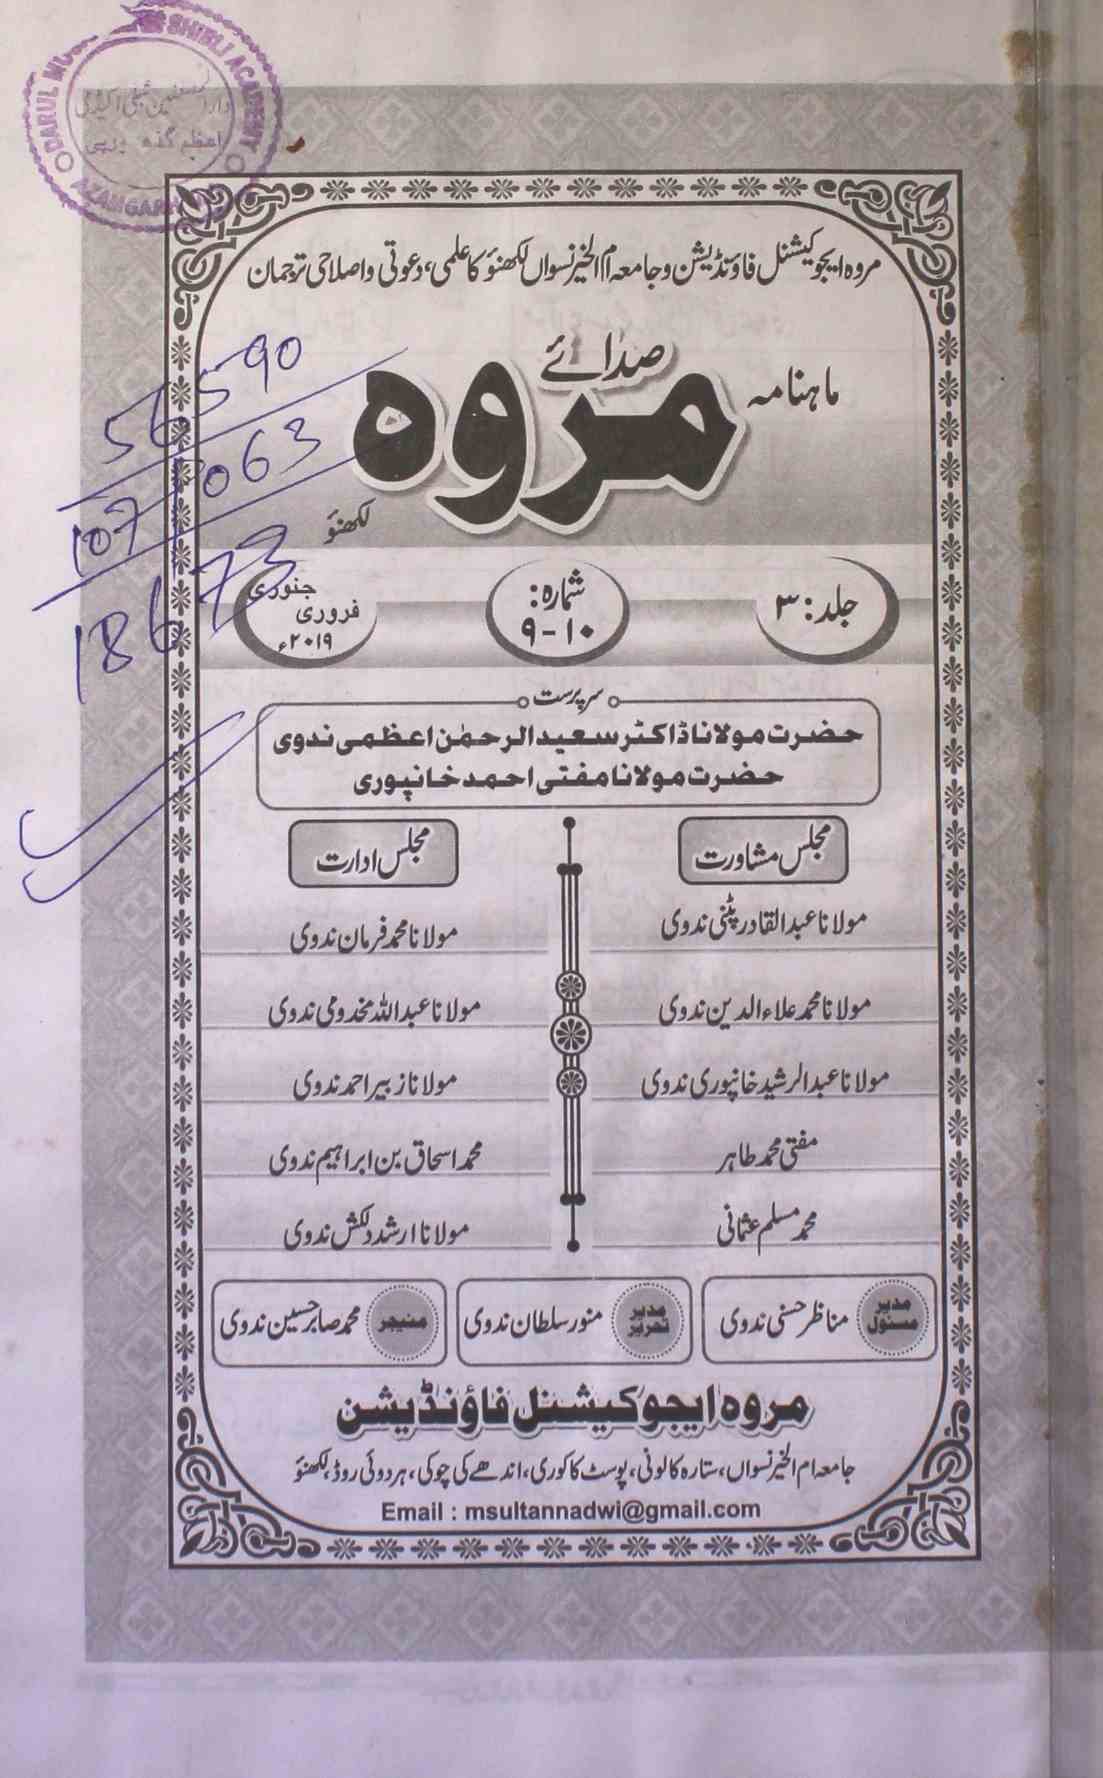 DARUL MU SHIBLI ACADEMY
دارالمصنفین شبلی اکیڈمی
اعظم گڈھ یوپی
AZAMGARH
مروہ ایجوکیشنل فاؤنڈیشن و جامعہ ام الخیر نسواں لکھنؤ کا علمی، دعوتی و اصلاحی ترجمان
ماہنامہ
صدائے
مروہ
لکھنؤ
56590
107063
18673
جلد: ۳
شمارہ:
۹-۱۰
جنوری
فروری
۲۰۱۹ء
سرپرست
حضرت مولانا ڈاکٹر سعید الرحمٰن اعظمی ندوی
حضرت مولانا مفتی احمد خانپوری
مجلس مشاورت
مولانا عبدالقادر پٹنی ندوی
مولانا محمد علاء الدین ندوی
مولانا عبدالرشید خانپوری ندوی
مفتی محمد طاہر
محمد مسلم عثمانی
مجلس ادارت
مولانا محمد فرمان ندوی
مولانا عبداللہ مخدومی ندوی
مولانا زبیر احمد ندوی
محمد اسحاق بن ابراہیم ندوی
مولانا ارشد دلکش ندوی
مدیر مسئول
مناظر حسنی ندوی
مدیر تحریر
منور سلطان ندوی
منیجر
محمد صابر حسین ندوی
مروہ ایجوکیشنل فاؤنڈیشن
جامعہ ام الخیر نسواں، ستارہ کالونی، پوسٹ کاکوری، اندھے کی چوکی، ہردوئی روڈ، لکھنؤ
Email : msultannadwi@gmail.com